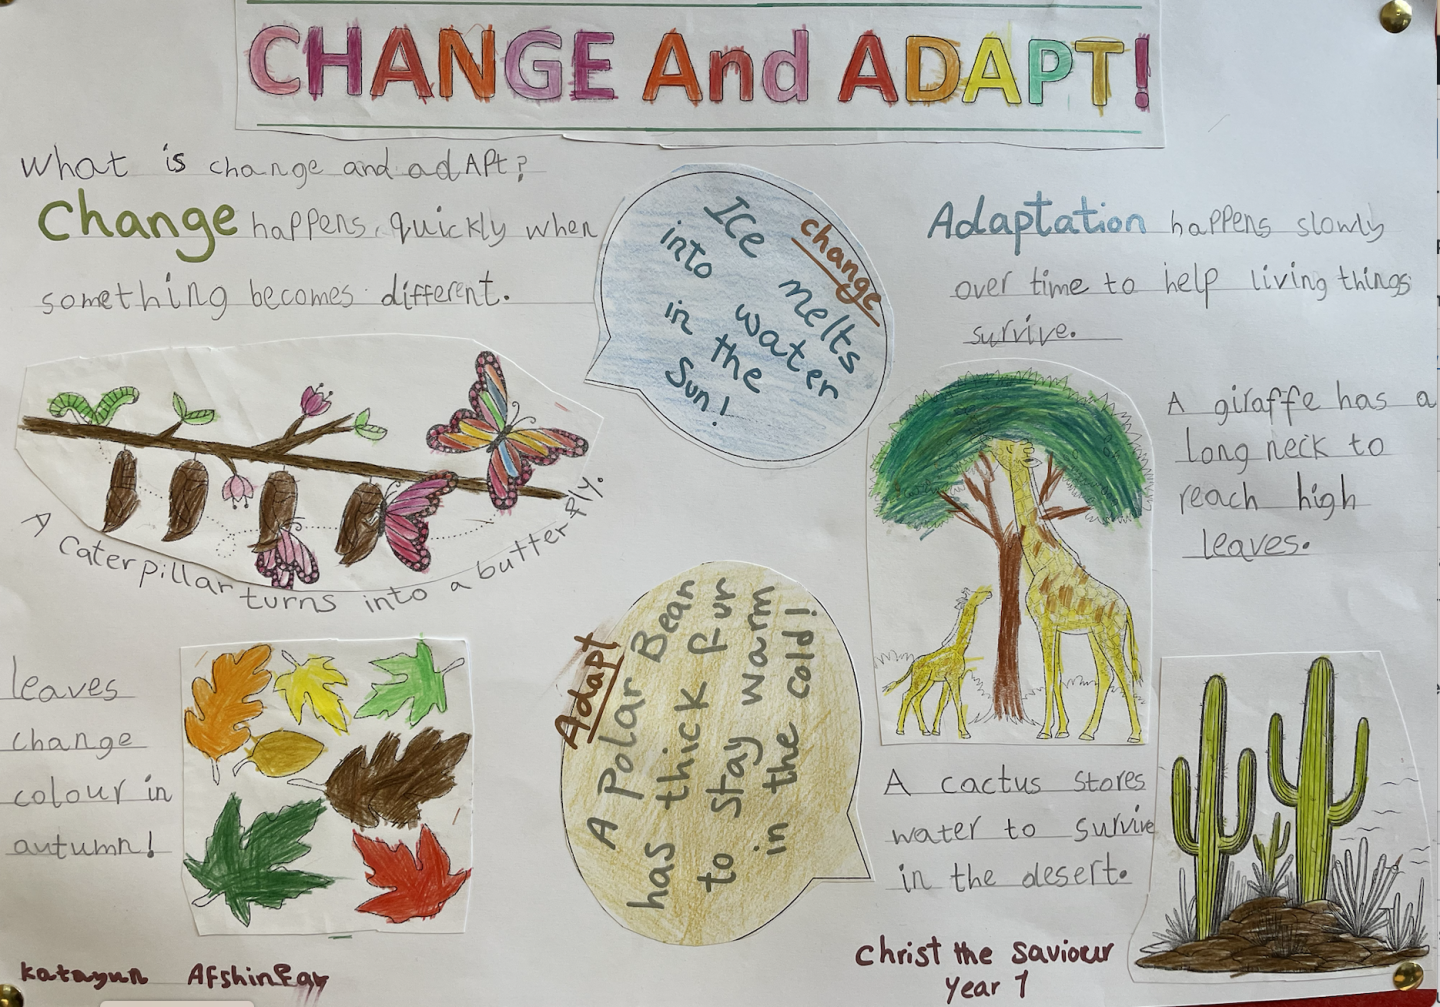 CHANGE And ADAPT!
What is change and adAPt?
Change happens quickly when
something becomes different.
A caterpillar turns into a butterfly.
leaves
change
colour in
autumn!
change
ICe melts
into water
in the
Sun!
Adapt
A Polar Bear
has thick fur
to stay warm
in the cold!
Adaptation happens slowly
over time to help living things
survive.
A giraffe has a
long neck to
reach high
leaves.
A cactus stores
water to survive
in the desert.
katayun AfshinPay
Christ the saviour
Year 1